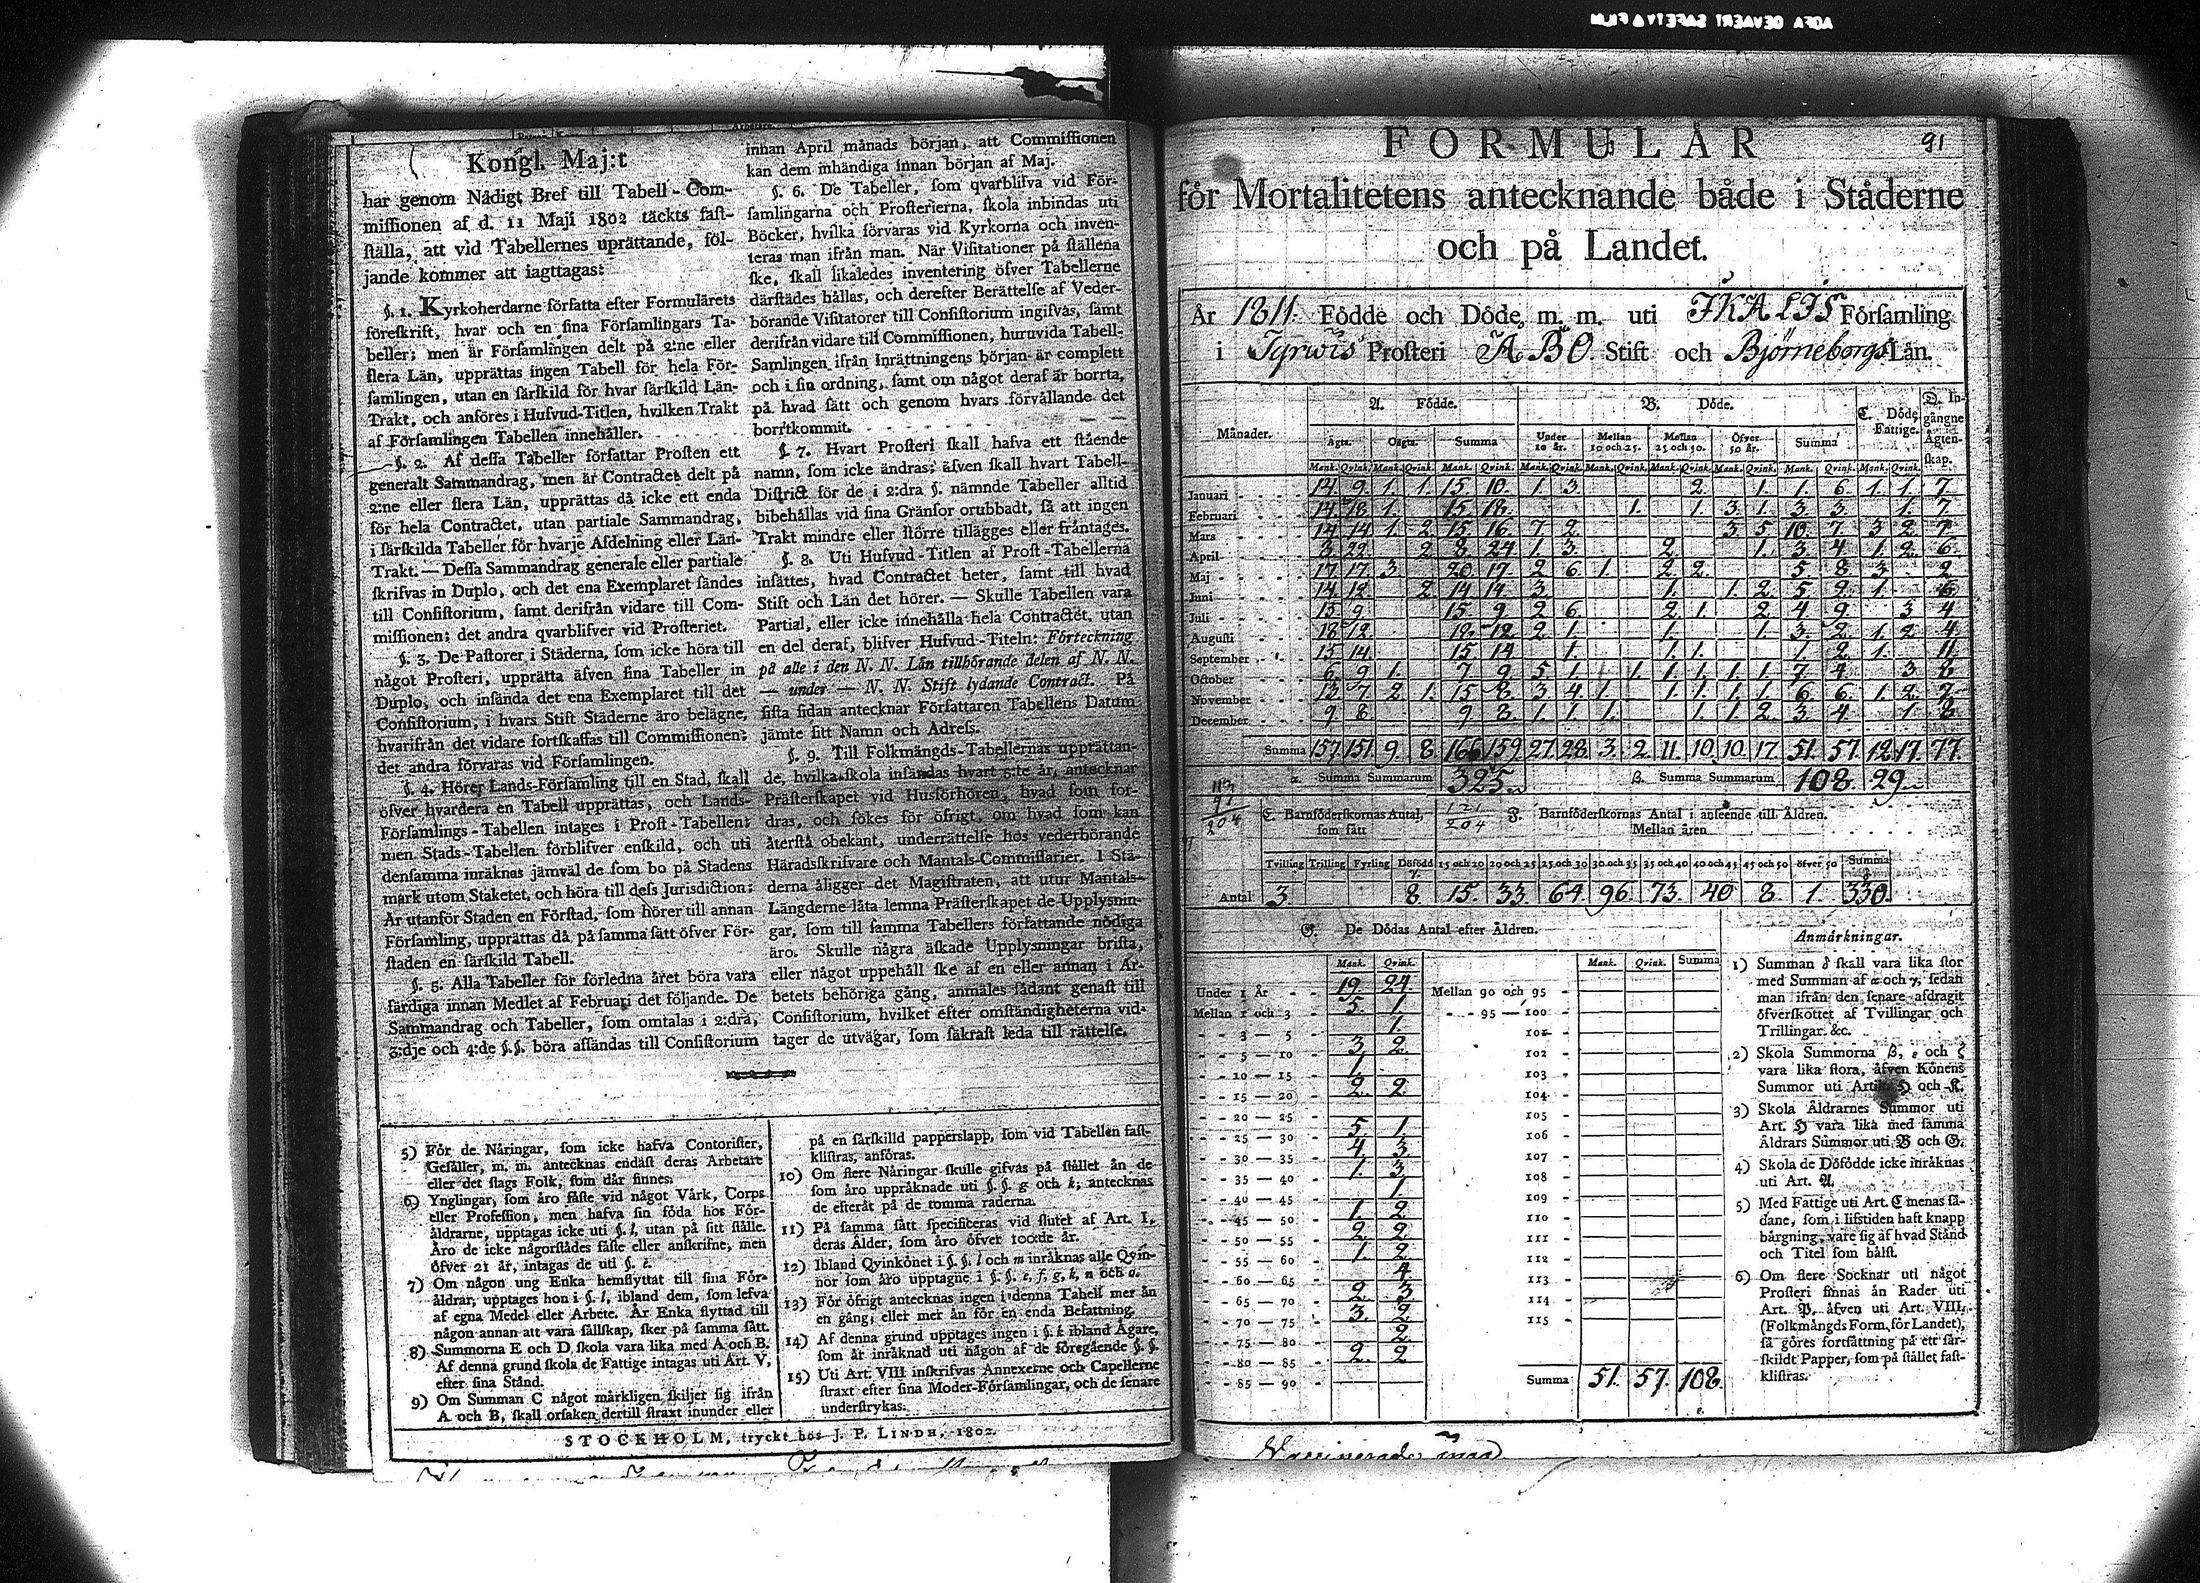 Kongl. Maj:t
har genom Nådigt Bref till Tabell-Com-
missionen af d. 11 Maji 1802 täckts fast-
ställa, att vid Tabellernes uprättande, föl-
jande kommer att iagttagas:
§. 1. Kyrkoherdarne författa efter Formulärets
föreskrift, hvar och en sina Församlingars Ta-
beller; men är Församlingen delt på 2:ne eller
flera Län, upprättas ingen Tabell för hela För-
samlingen, utan en särskild för hvar särskild Län-
Trakt, och anföres i Hufvud-Titlen, hvilken Trakt
af Församlingen Tabellen innehåller.
§. 2. Af dessa Tabeller författar Prosten ett
generalt Sammandrag, men är Contractet delt på
2:ne eller flera Län, upprättas då icke ett enda
för hela Contractet, utan partiale Sammandrag,
i särskilda Tabeller för hvarje Afdelning eller Län-
Trakt. — Dessa Sammandrag generale eller partiale
skrifvas in Duplo, och det ena Exemplaret sändes
till Consistorium, samt derifrån vidare till Com-
missionen; det andra qvarblifver vid Prosteriet.
§. 3. De Pastorer i Städerna, som icke höra till
något Prosteri, upprätta äfven sina Tabeller in
Duplo, och insända det ena Exemplaret till det
Consistorium, i hvars Stift Städerne äro belägne,
hvarifrån det vidare fortskaffas till Commissionen;
det andra förvaras vid Församlingen.
§. 4. Hörer Lands-Församling till en Stad, skall
öfver hvardera en Tabell upprättas, och Lands-
Församlings-Tabellen intages i Prost-Tabellen;
men Stads-Tabellen förblifver enskild, och uti
densamma inräknas jämväl de som bo på Stadens
mark utom Staketet, och höra till dess Jurisdiction;
Är utanför Staden en Förstad, som hörer till annan
Församling, upprättas då på samma sätt öfver För-
staden en särskild Tabell.
§. 5. Alla Tabeller för förledna året böra vara
färdiga innan Medlet af Februari det följande. De
Sammandrag och Tabeller, som omtalas i 2:dra,
3:dje och 4:de §.§. böra afsändas till Consistorium
innan April månads början, att Commissionen
kan dem inhändiga innan början af Maj.
§. 6. De Tabeller, som qvarblifva vid För-
samlingarna och Prosterierna, skola inbindas uti
Böcker, hvilka förvaras vid Kyrkorna och inven-
teras man ifrån man. När Visitationer på ställena
ske, skall likaledes inventering öfver Tabellerne
därstädes hållas, och derefter Berättelse af Veder-
börande Visitatorer till Consistorium ingifvas, samt
derifrån vidare till Commissionen, huruvida Tabell-
Samlingen ifrån Inrättningens början är complett
och i sin ordning, samt om något deraf är borrta,
på hvad sätt och genom hvars förvållande det
borrtkommit.
§. 7. Hvart Prosteri skall hafva ett stående
namn, som icke ändras; äfven skall hvart Tabell-
District för de i 2:dra §. nämnde Tabeller alltid
bibehållas vid sina Gränsor orubbadt, så att ingen
Trakt mindre eller större tillägges eller fråntages.
§. 8. Uti Hufvud-Titlen af Prost-Tabellerna
insättes, hvad Contractet heter, samt till hvad
Stift och Län det hörer. — Skulle Tabellen vara
Partial, eller icke innehålla hela Contractet, utan
en del deraf, blifver Hufvud-Titeln: Förteckning
på alle i den N. N. Län tillhörande delen af N. N.
— under — N. N. Stift lydande Contract. På
sista sidan antecknar Författaren Tabellens Datum
jämte sitt Namn och Adress.
§. 9. Till Folkmängds-Tabellernas upprättan-
de, hvilka skola insändas hvart 5:te år, antecknar
Prästerskapet vid Husförhören, hvad som for-
dras, och sökes för öfrigt, om hvad som kan
återstå obekant, underrättelse hos vederbörande
Häradsskrifvare och Mantals-Commissarier. I Stä-
derna åligger det Magistraten, att utur Mantals-
Längderne låta lemna Prästerskapet de Upplysnin-
gar, som till samma Tabellers författande nödiga
äro. Skulle några äskade Upplysningar brista,
eller något uppehåll ske af en eller annan i Ar-
betets behöriga gång, anmäles sådant genast till
Consistorium, hvilket efter omständigheterna vid-
tager de utvägar, som säkrast leda till rättelse.
5) För de Näringar, som icke hafva Contorister,
Gesäller, m. m. antecknas endast deras Arbetare
eller det slags Folk, som där finnes.
6) Ynglingar, som äro fäste vid något Värk, Corps
eller Profession, men hafva sin föda hos För-
äldrarne, upptagas icke uti §. l, utan på sitt ställe.
Äro de icke någorstädes fäste eller anskrifne, men
öfver 21 år, intagas de uti §. i.
7) Om någon ung Enka hemflyttat till sina För-
äldrar, upptages hon i §. l, ibland dem, som lefva
af egna Medel eller Arbete. Är Enka flyttad till
någon annan att vara sällskap, sker på samma sätt.
8) Summorna E och D skola vara lika med A och B.
Af denna grund skola de Fattige intagas uti Art. V,
efter sina Stånd.
9) Om Summan C något märkligen skiljer sig ifrån
A och B, skall orsaken dertill straxt inunder eller
på en särskilld papperslapp, som vid Tabellen fast-
klistras, anföras.
10) Om flere Näringar skulle gifvas på stället än de
som äro uppräknade uti §. §. g och k, antecknas
de efteråt på de tomma raderna.
11) På samma sätt specificeras vid slutet af Art. I,
deras Ålder, som äro öfver 100:de år.
12) Ibland Qvinkönet i §. §. l och m inräknas alle Qvin-
nor som äro upptagne i §. §. e, f, g, k, n och o.
13) För öfrigt antecknas ingen i denna Tabell mer än
en gång, eller mer än för en enda Befattning.
14) Af denna grund upptages ingen i §. k ibland Ägare,
som är inräknad uti någon af de föregående §. §.
15) Uti Art. VIII inskrifvas Annexerne och Capellerne
straxt efter sina Moder-Församlingar, och de senare
understrykas.
STOCKHOLM, tryckt hos J. P. LINDH, 1802.
FORMULÄR
91
för Mortalitetens antecknande både i Städerne
och på Landet.
År 1811. Födde och Döde, m. m. uti IKALIS Församling
i Tyrwis Prosteri ÅBO Stift och Björneborgs Län.
Månader. A. Födde. B. Döde. C. Döde Fattige. D. Ingångne Ägtenskap.
Ägta. Oägta. Summa Under 10 år. Mellan 10 och 25. Mellan 25 och 50. Öfver 50 år. Summa
Mank. Qvink. Mank. Qvink. Mank. Qvink. Mank. Qvink. Mank. Qvink. Mank. Qvink. Mank. Qvink. Mank. Qvink. Mank. Qvink.
Januari 14. 9. 1. 1. 15. 10. 1. 3. 2. 1. 1. 6. 1. 1. 7.
Februari 14. 18. 1. 15. 18. 1. 1. 3. 1. 3. 3. 1. 7.
Mars 14. 14. 1. 2. 15. 16. 7. 2. 3. 5. 10. 7. 3. 2. 7.
April 8. 22. 2. 8. 24. 1. 3. 2. 1. 3. 4. 1. 2. 6.
Maj 17. 17. 3. 20. 17. 2. 6. 1. 2. 2. 5. 8. 3. 2.
Juni 14. 12. 2. 14. 14. 3. 1. 1. 2. 5. 2. 1. 6.
Juli 15. 9. 15. 9. 2. 6. 2. 1. 2. 4. 9. 3. 4.
Augusti 18. 12. 18. 12. 2. 1. 1. 1. 3. 2. 1. 2. 4.
September 15. 14. 15. 14. 1. 1. 1. 1. 2. 1. 11.
October 6. 9. 1. 7. 9. 5. 1. 1. 1. 1. 1. 1. 7. 4. 3. 8.
November 13. 7. 2. 1. 15. 8. 3. 4. 1. 1. 1. 1. 1. 6. 6. 1. 2. 7.
December 9. 8. 9. 8. 1. 1. 1. 1. 1. 1. 2. 3. 4. 1. 8.
Summa 157. 151. 9. 8. 166. 159. 27. 28. 3. 2. 11. 10. 10. 17. 51. 57. 12. 17. 77.
α. Summa Summarum 325. β. Summa Summarum 108. 29.
E. Barnföderskornas Antal, som fått
F. Barnföderskornas Antal i anseende till Åldren.
Mellan åren
Tvilling Trilling Fyrling Döfödd γ. 15 och 20 20 och 25 25 och 30 30 och 35 35 och 40 40 och 45 45 och 50 öfver 50 Summa δ
Antal 3 8. 15. 33. 64. 96. 73. 40 8. 1. 330.
G. De Dödas Antal efter Åldren.
Mank. Qvink. Mank. Qvink. Summa
Under 1 År 19. 24. Mellan 90 och 95
Mellan 1 och 3 5. 1. 95 — 100
3 — 5 1. 101
5 — 10 3. 2. 102
10 — 15 1. 103
15 — 20 2. 2. 104
20 — 25 105
25 — 30 5. 1. 106
30 — 35 4. 3. 107
35 — 40 1. 3. 108
40 — 45 1. 109
45 — 50 1. 2. 110
50 — 55 2. 2. 111
55 — 60 1. 2. 112
60 — 65 4. 113
65 — 70 2. 3. 114
70 — 75 3. 2. 115
75 — 80 2.
80 — 85 2. 2.
85 — 90
Summa 51. 57. 108.
Anmärkningar.
1) Summan δ skall vara lika stor
med Summan af α och γ, sedan
man ifrån den senare afdragit
öfverskottet af Tvillingar och
Trillingar &c.
2) Skola Summorna β, ε och ζ
vara lika stora, äfven Könens
Summor uti Artik. H och K.
3) Skola Åldrarnes Summor uti
Art. H vara lika med samma
Åldrars Summor uti B och G.
4) Skola de Döfödde icke inräknas
uti Art. A.
5) Med Fattige uti Art. C menas så-
dane, som i lifstiden haft knapp
bärgning, vare sig af hvad Stånd
och Titel som hälst.
6) Om flere Socknar uti något
Prosteri finnas än Rader uti
Art. P. äfven uti Art. VIII,
(Folkmängds Form. för Landet),
så göres fortsättning på ett sär-
skildt Papper, som på stället fast-
klistras.